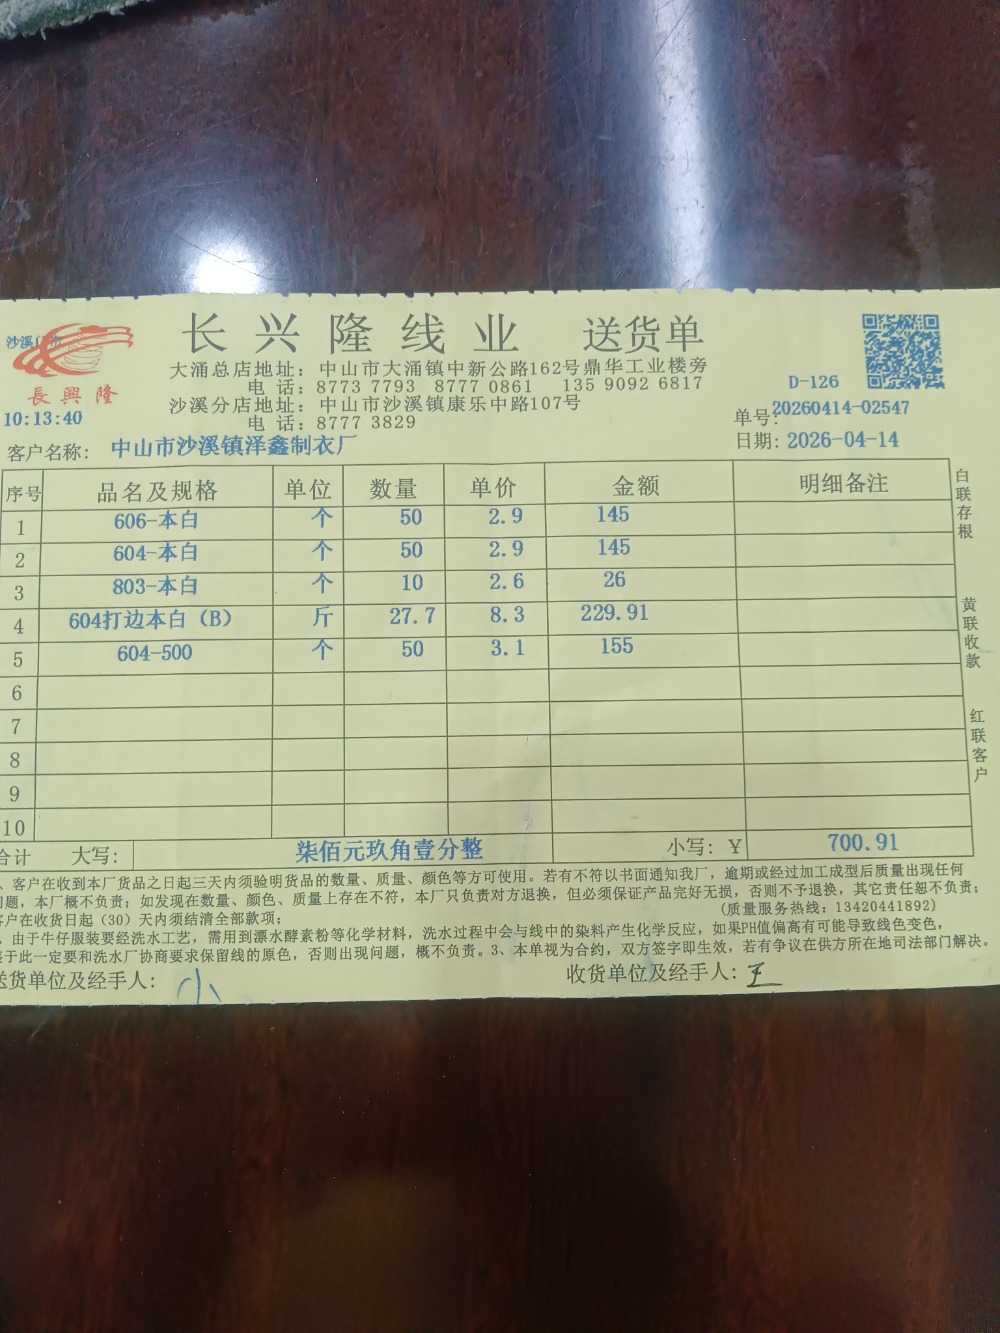 长兴隆线业 送货单
沙溪门市
長興隆
大涌总店地址：中山市大涌镇中新公路162号鼎华工业楼旁
电 话：8773 7793 8777 0861 135 9092 6817
沙溪分店地址：中山市沙溪镇康乐中路107号
电 话：8777 3829
D-126
10:13:40
单号:20260414-02547
客户名称: 中山市沙溪镇泽鑫制衣厂
日期: 2026-04-14
序号 品名及规格 单位 数量 单价 金额 明细备注
1 606-本白 个 50 2.9 145
2 604-本白 个 50 2.9 145
3 803-本白 个 10 2.6 26
4 604打边本白（B） 斤 27.7 8.3 229.91
5 604-500 个 50 3.1 155
6
7
8
9
10
合计 大写: 柒佰元玖角壹分整 小写: ￥ 700.91
白联存根
黄联收款
红联客户
、客户在收到本厂货品之日起三天内须验明货品的数量、质量、颜色等方可使用。若有不符以书面通知我厂，逾期或经过加工成型后质量出现任何
问题，本厂概不负责；如发现在数量、颜色、质量上存在不符，本厂只负责对方退换，但必须保证产品完好无损，否则不予退换，其它责任恕不负责；
客户在收货日起（30）天内须结清全部款项；
(质量服务热线: 13420441892)
、由于牛仔服装要经洗水工艺，需用到漂水酵素粉等化学材料，洗水过程中会与线中的染料产生化学反应，如果PH值偏高有可能导致线色变色，
鉴于此一定要和洗水厂协商要求保留线的原色，否则出现问题，概不负责。3、本单视为合约，双方签字即生效，若有争议在供方所在地司法部门解决。
送货单位及经手人: 小
收货单位及经手人: 王